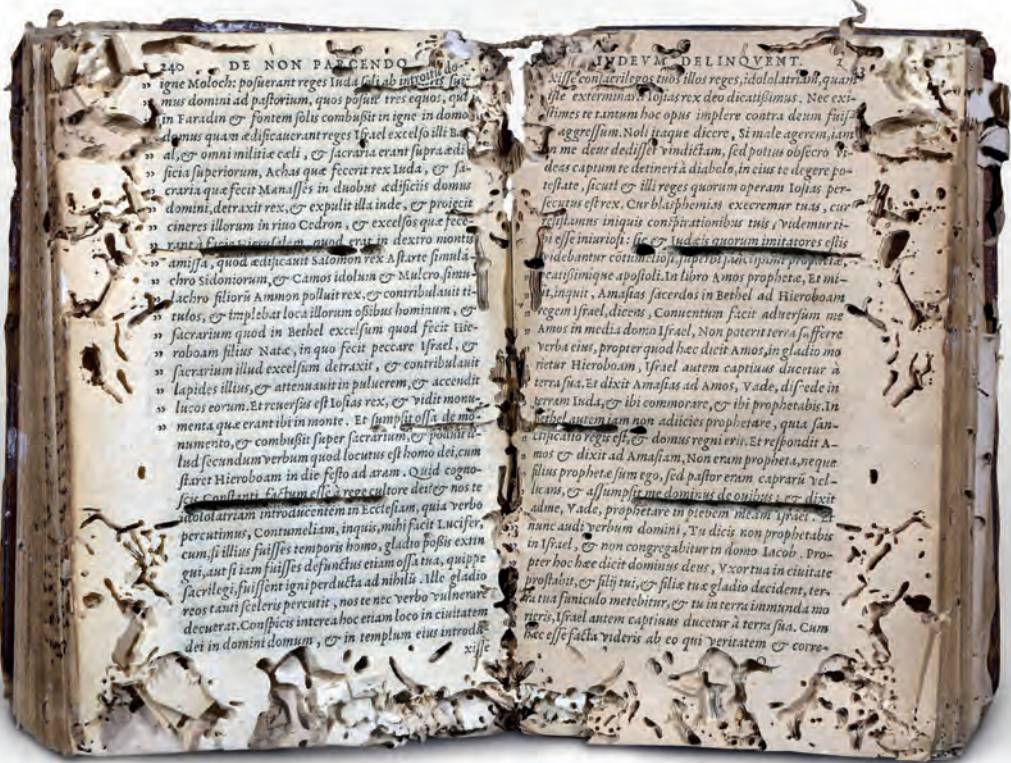 240 DE NON PARCENDO
igne Moloch: posuerant reges Iuda soli ab introitu do-
„ mus domini ad pastorium, quos posuit tres equos, qui
„ in Faradin & fontem solis combußit in igne in domo
domus quam ædificauerant reges Israel excelso illi Ba
„ al, & omni militiæ cæli, & sacraria erant supra ædi-
„ ficia superiorum, Achas quæ fecerit rex Iuda, & sa-
„ craria quæ fecit Manasses in duobus ædificiis domus
„ domini, detraxit rex, & expulit illa inde, & proiecit
„ cineres illorum in riuo Cedron, & excelsos quæ fece-
„ rant à facie Hierusalem, quod erat in dextro montis
„ amissa, quod ædificauit Salomon rex Astarte simula-
„ chro Sidoniorum, & Camos idolum & Mulcro, simu-
„ lachro filiorū Ammon polluit rex, & contribulauit ti-
„ tulos, & implebat loca illorum oßibus hominum, &
„ sacrarium quod in Bethel excelsum quod fecit Hie-
„ roboam filius Natæ, in quo fecit peccare Israel, &
„ sacrarium illud excelsum detraxit, & contribulauit
„ lapides illius, & attenuauit in puluerem, & accendit
„ lucos eorum. Et reuersus est Iosias rex, & vidit monu-
„ menta quæ erant ibi in monte. Et sumpsit ossa de mo-
„ numento, & combußit super sacrarium, & polluit il-
lud secundum verbum quod locutus est homo dei, cum
staret Hieroboam in die festo ad aram. Quid cogno-
scis Constanti, factum esse à rege cultore dei? & nos te
idololatriam introducentem in Ecclesiam, quia verbo
percutimus, Contumeliam, inquis, mihi facit Lucifer,
cum, si illius fuisses temporis homo, gladio poßis extin
gui, aut si iam fuisses defunctus etiam ossa tua, quippe
sacrilegi, fuissent igni perducta ad nihilū. Ille gladio
reos tanti sceleris percutit, nos te nec verbo vulnerare
decuerat. Conspicis interea hoc etiam loco in ciuitatem
dei in domini domum, & in templum eius introdu-
xisse
INDEVM DELINQVENT.
xisse consacrilegos tuos illos reges, idololatriam, quam
iste exterminarit Iosias rex deo dicatißimus. Nec exi-
stimes te tantum hoc opus implere contra deum fuis-
aggressum. Noli itaque dicere, Si male agerem, iam
in me deus dedisset vindictam, sed potius obsecro vi-
deas captum te detineri à diabolo, in eius te degere po-
testate, sicut & illi reges quorum operam Iosias per-
secutus est rex. Cur blasphemias execremur tuas, cur
resistamus iniquis conspirationibus tuis, videmur ti-
bi esse iniuriosi: sic & Iudæis quorum imitatores estis
videbantur cōtumeliosi, superbi sanctißimi prophetæ,
beatißimique apostoli. In libro Amos prophetæ, Et mi-
sit, inquit, Amasias sacerdos in Bethel ad Hieroboam
regem Israel, dicens, Conuentum facit aduersum me
Amos in media domo Israel, Non poterit terra sufferre
verba eius, propter quod hæc dicit Amos, in gladio mo
rietur Hieroboam, Israel autem captiuus ducetur à
terra sua. Et dixit Amasias ad Amos, Vade, discede in
terram Iuda, & ibi commorare, & ibi prophetabis. In
Bethel autem iam non adiicies prophetare, quia san-
ctificatio regis est, & domus regni erit. Et respondit A-
mos & dixit ad Amasiam, Non eram propheta, neque
filius prophetæ sum ego, sed pastor eram caprarū vel-
licans, & assumpsit me dominus de ouibus: & dixit
ad me, Vade, prophetare in plebem meam Israel. Et
nunc audi verbum domini, Tu dicis non prophetabis
in Israel, & non congregabitur in domo Iacob. Pro-
pter hoc hæc dicit dominus deus, Vxor tua in ciuitate
prostabit, & filij tui, & filiæ tuæ gladio decident, ter-
ra tua funiculo metebitur, & tu in terra immunda mo
rieris, Israel autem captiuus ducetur à terra sua. Cum
hæc esse facta videris ab eo qui veritatem & corre-